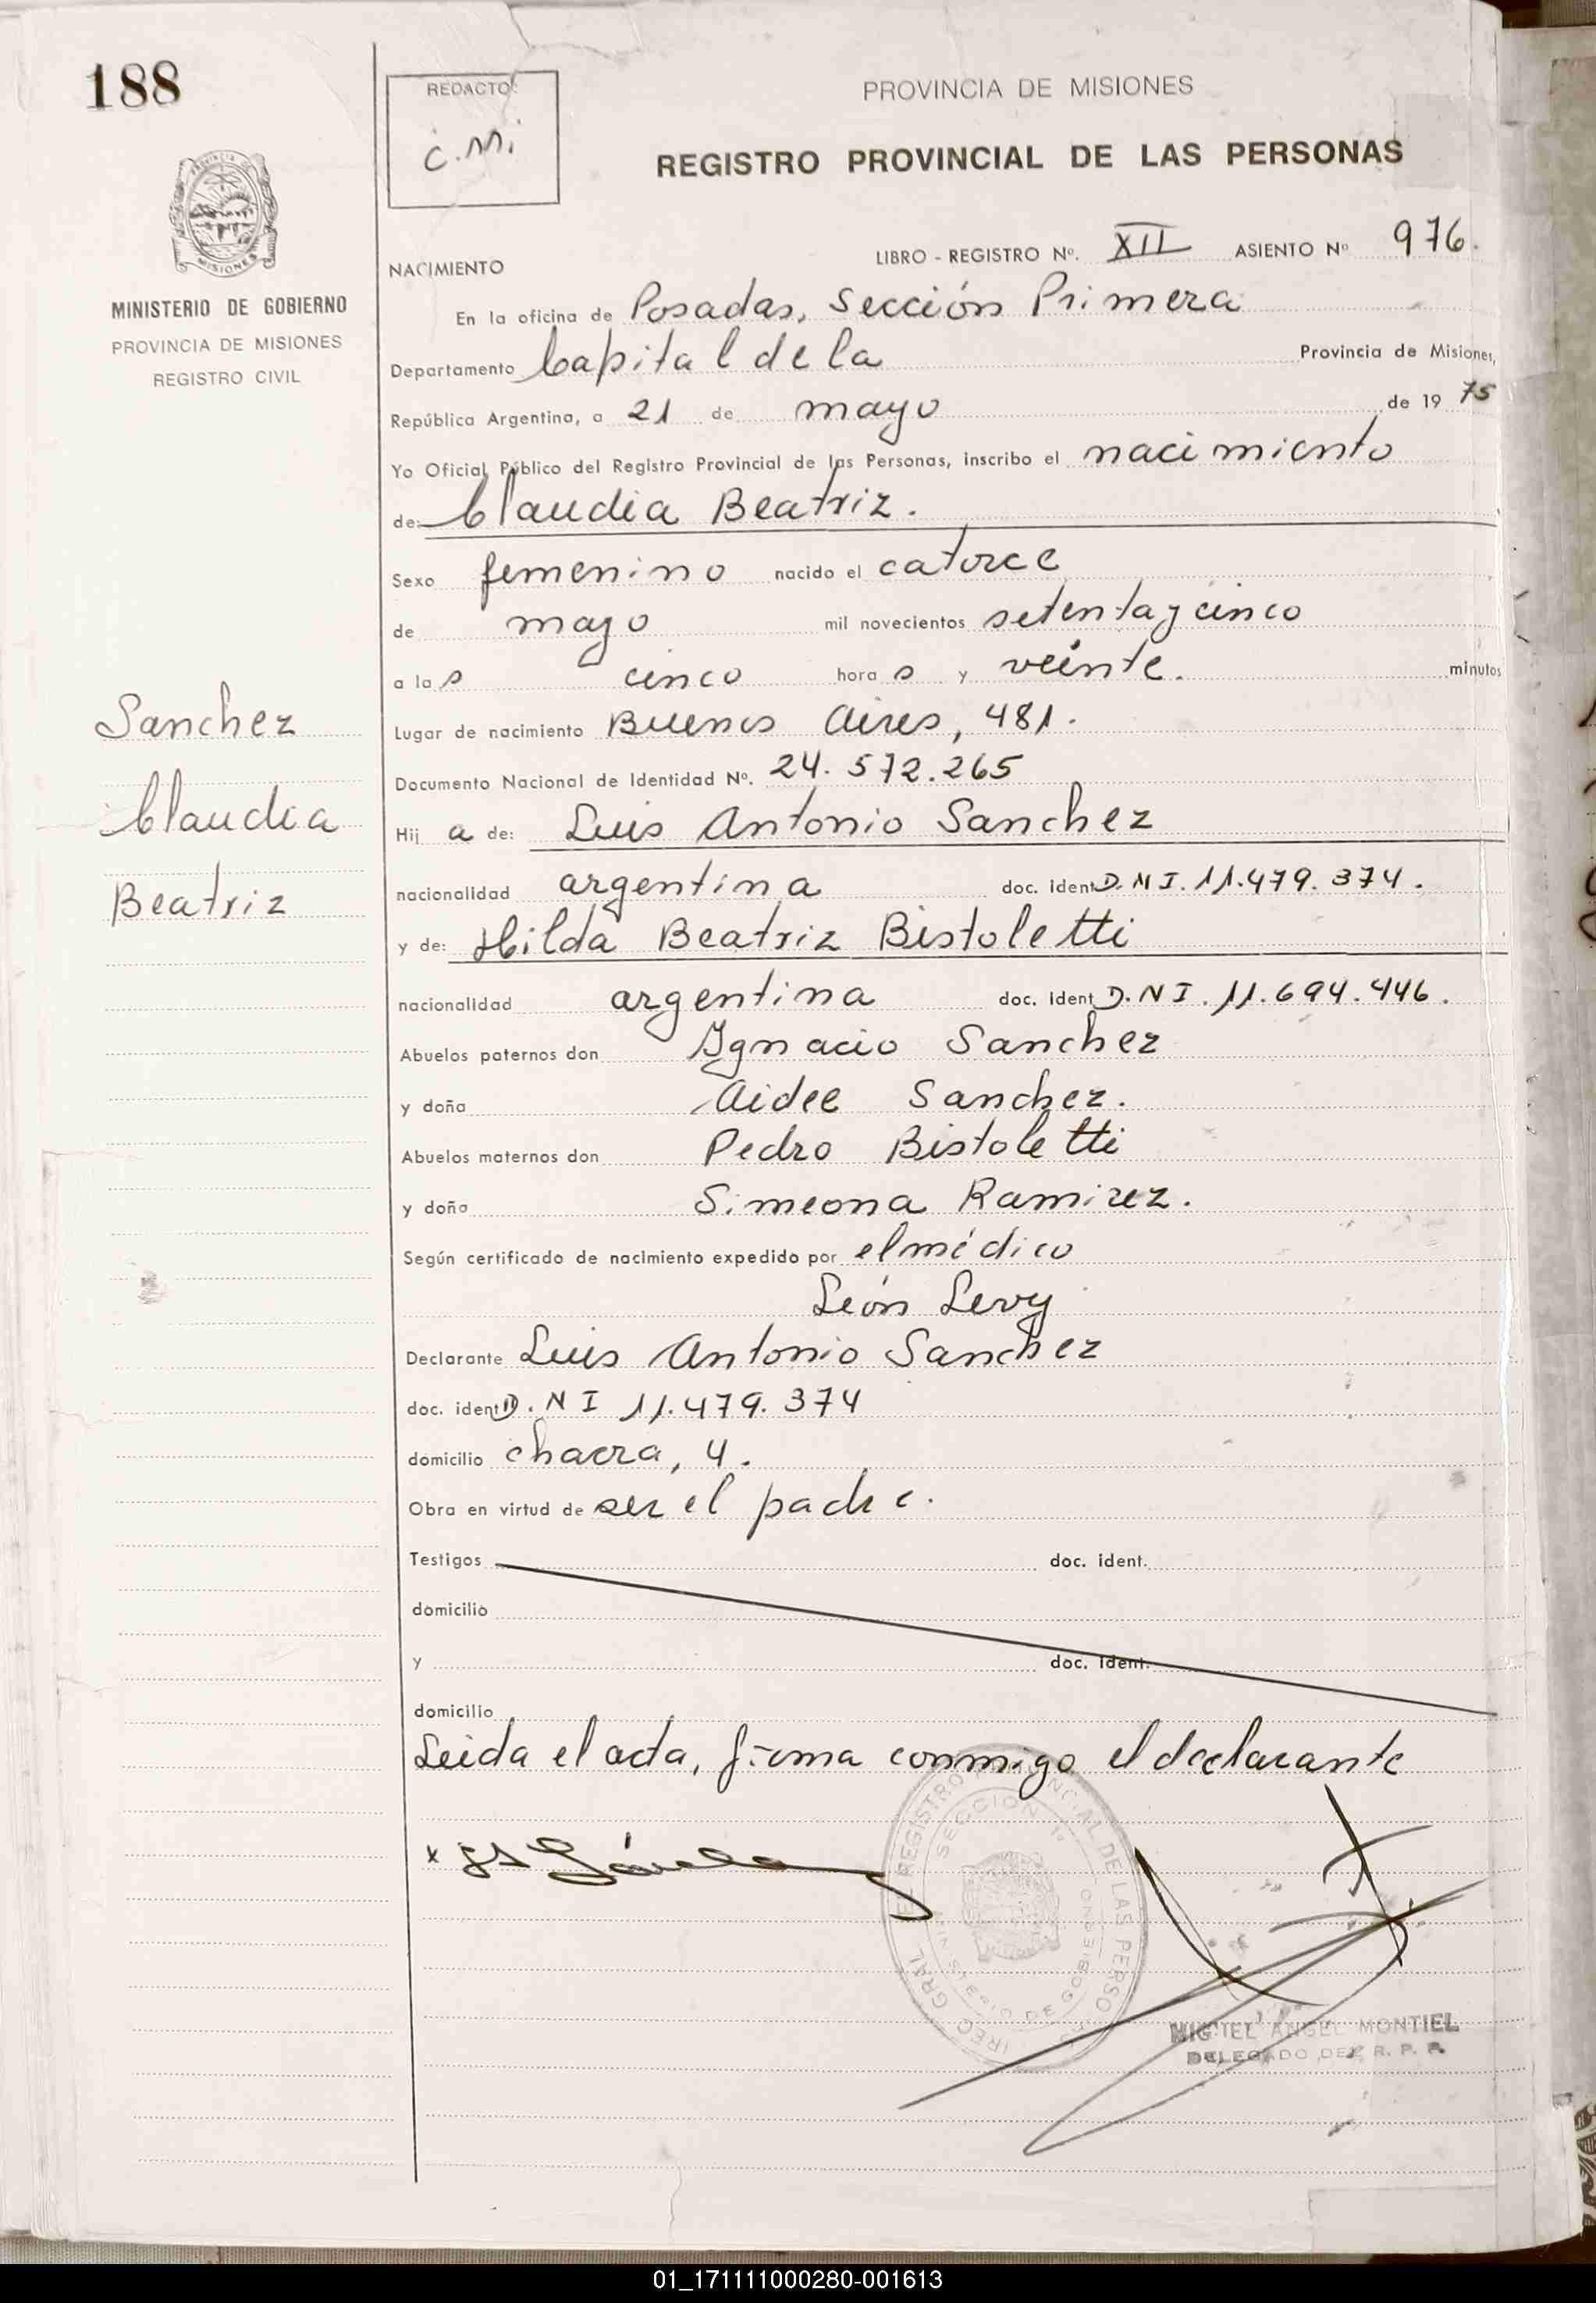 188
REDACTO:
C.M.
PROVINCIA DE MISIONES
REGISTRO PROVINCIAL DE LAS PERSONAS
MISIONES
MINISTERIO DE GOBIERNO
PROVINCIA DE MISIONES
REGISTRO CIVIL
Sanchez
Claudia
Beatriz
LIBRO - REGISTRO Nº. XII ASIENTO Nº 976.
NACIMIENTO
En la oficina de Posadas, Sección Primera
Departamento Capital de la Provincia de Misiones,
República Argentina, a 21 de mayo de 1975
Yo Oficial Público del Registro Provincial de las Personas, inscribo el nacimiento
de: Claudia Beatriz.
Sexo femenino nacido el catorce
de mayo mil novecientos setenta y cinco
a las cinco horas y veinte. minutos
Lugar de nacimiento Buenos Aires, 481.
Documento Nacional de Identidad Nº. 24.572.265
Hija de: Luis Antonio Sanchez
nacionalidad argentina doc. ident D.N.I. 11.479.374.
y de: Hilda Beatriz Bistoletti
nacionalidad argentina doc. ident D.N.I. 11.694.446.
Abuelos paternos don Ignacio Sanchez
y doña Aidee Sanchez.
Abuelos maternos don Pedro Bistoletti
y doña Simeona Ramirez.
Según certificado de nacimiento expedido por el médico
León Levy
Declarante Luis Antonio Sanchez
doc. ident D.N I 11.479.374
domicilio chacra, 4.
Obra en virtud de ser el padre.
Testigos doc. ident.
domicilio
y doc. ident.
domicilio
Leida el acta, firma conmigo el declarante
SECCION 1ª
MINISTERIO DE GOBIERNO
MIGUEL ANGEL MONTIEL
DELEGADO DEL R. P. P.
01_171111000280-001613